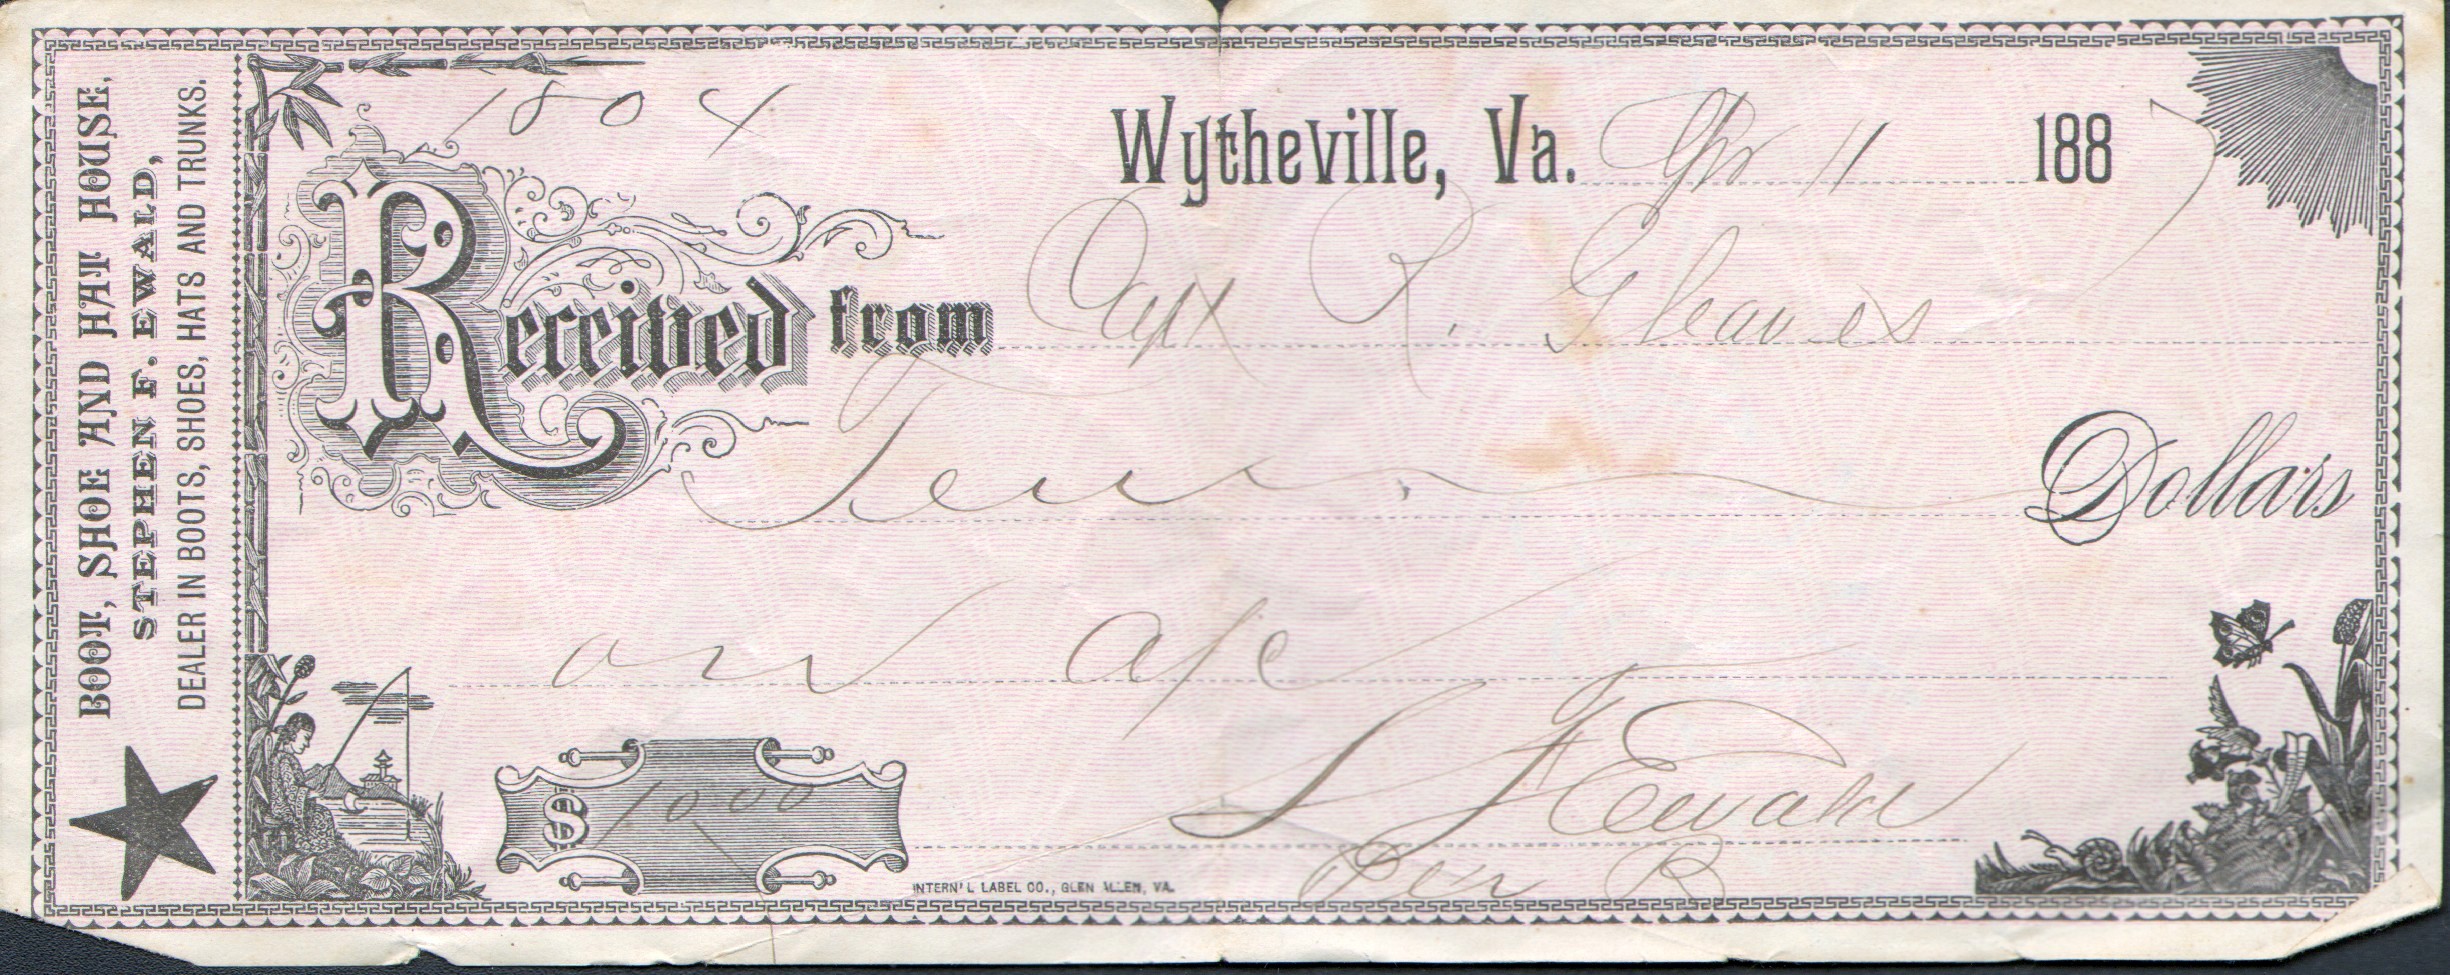 BOOT, SHOE AND HAT HOUSE,
STEPHEN F. EWALD,
DEALER IN BOOTS, SHOES, HATS AND TRUNKS.
1804
Wytheville, Va. Apr 11 1887
Received from Capt R. Gleaves
Ten Dollars
on a/c
$ 10 00
S F Ewald
Per B
INTERN'L LABEL CO., GLEN ALLEN, VA.